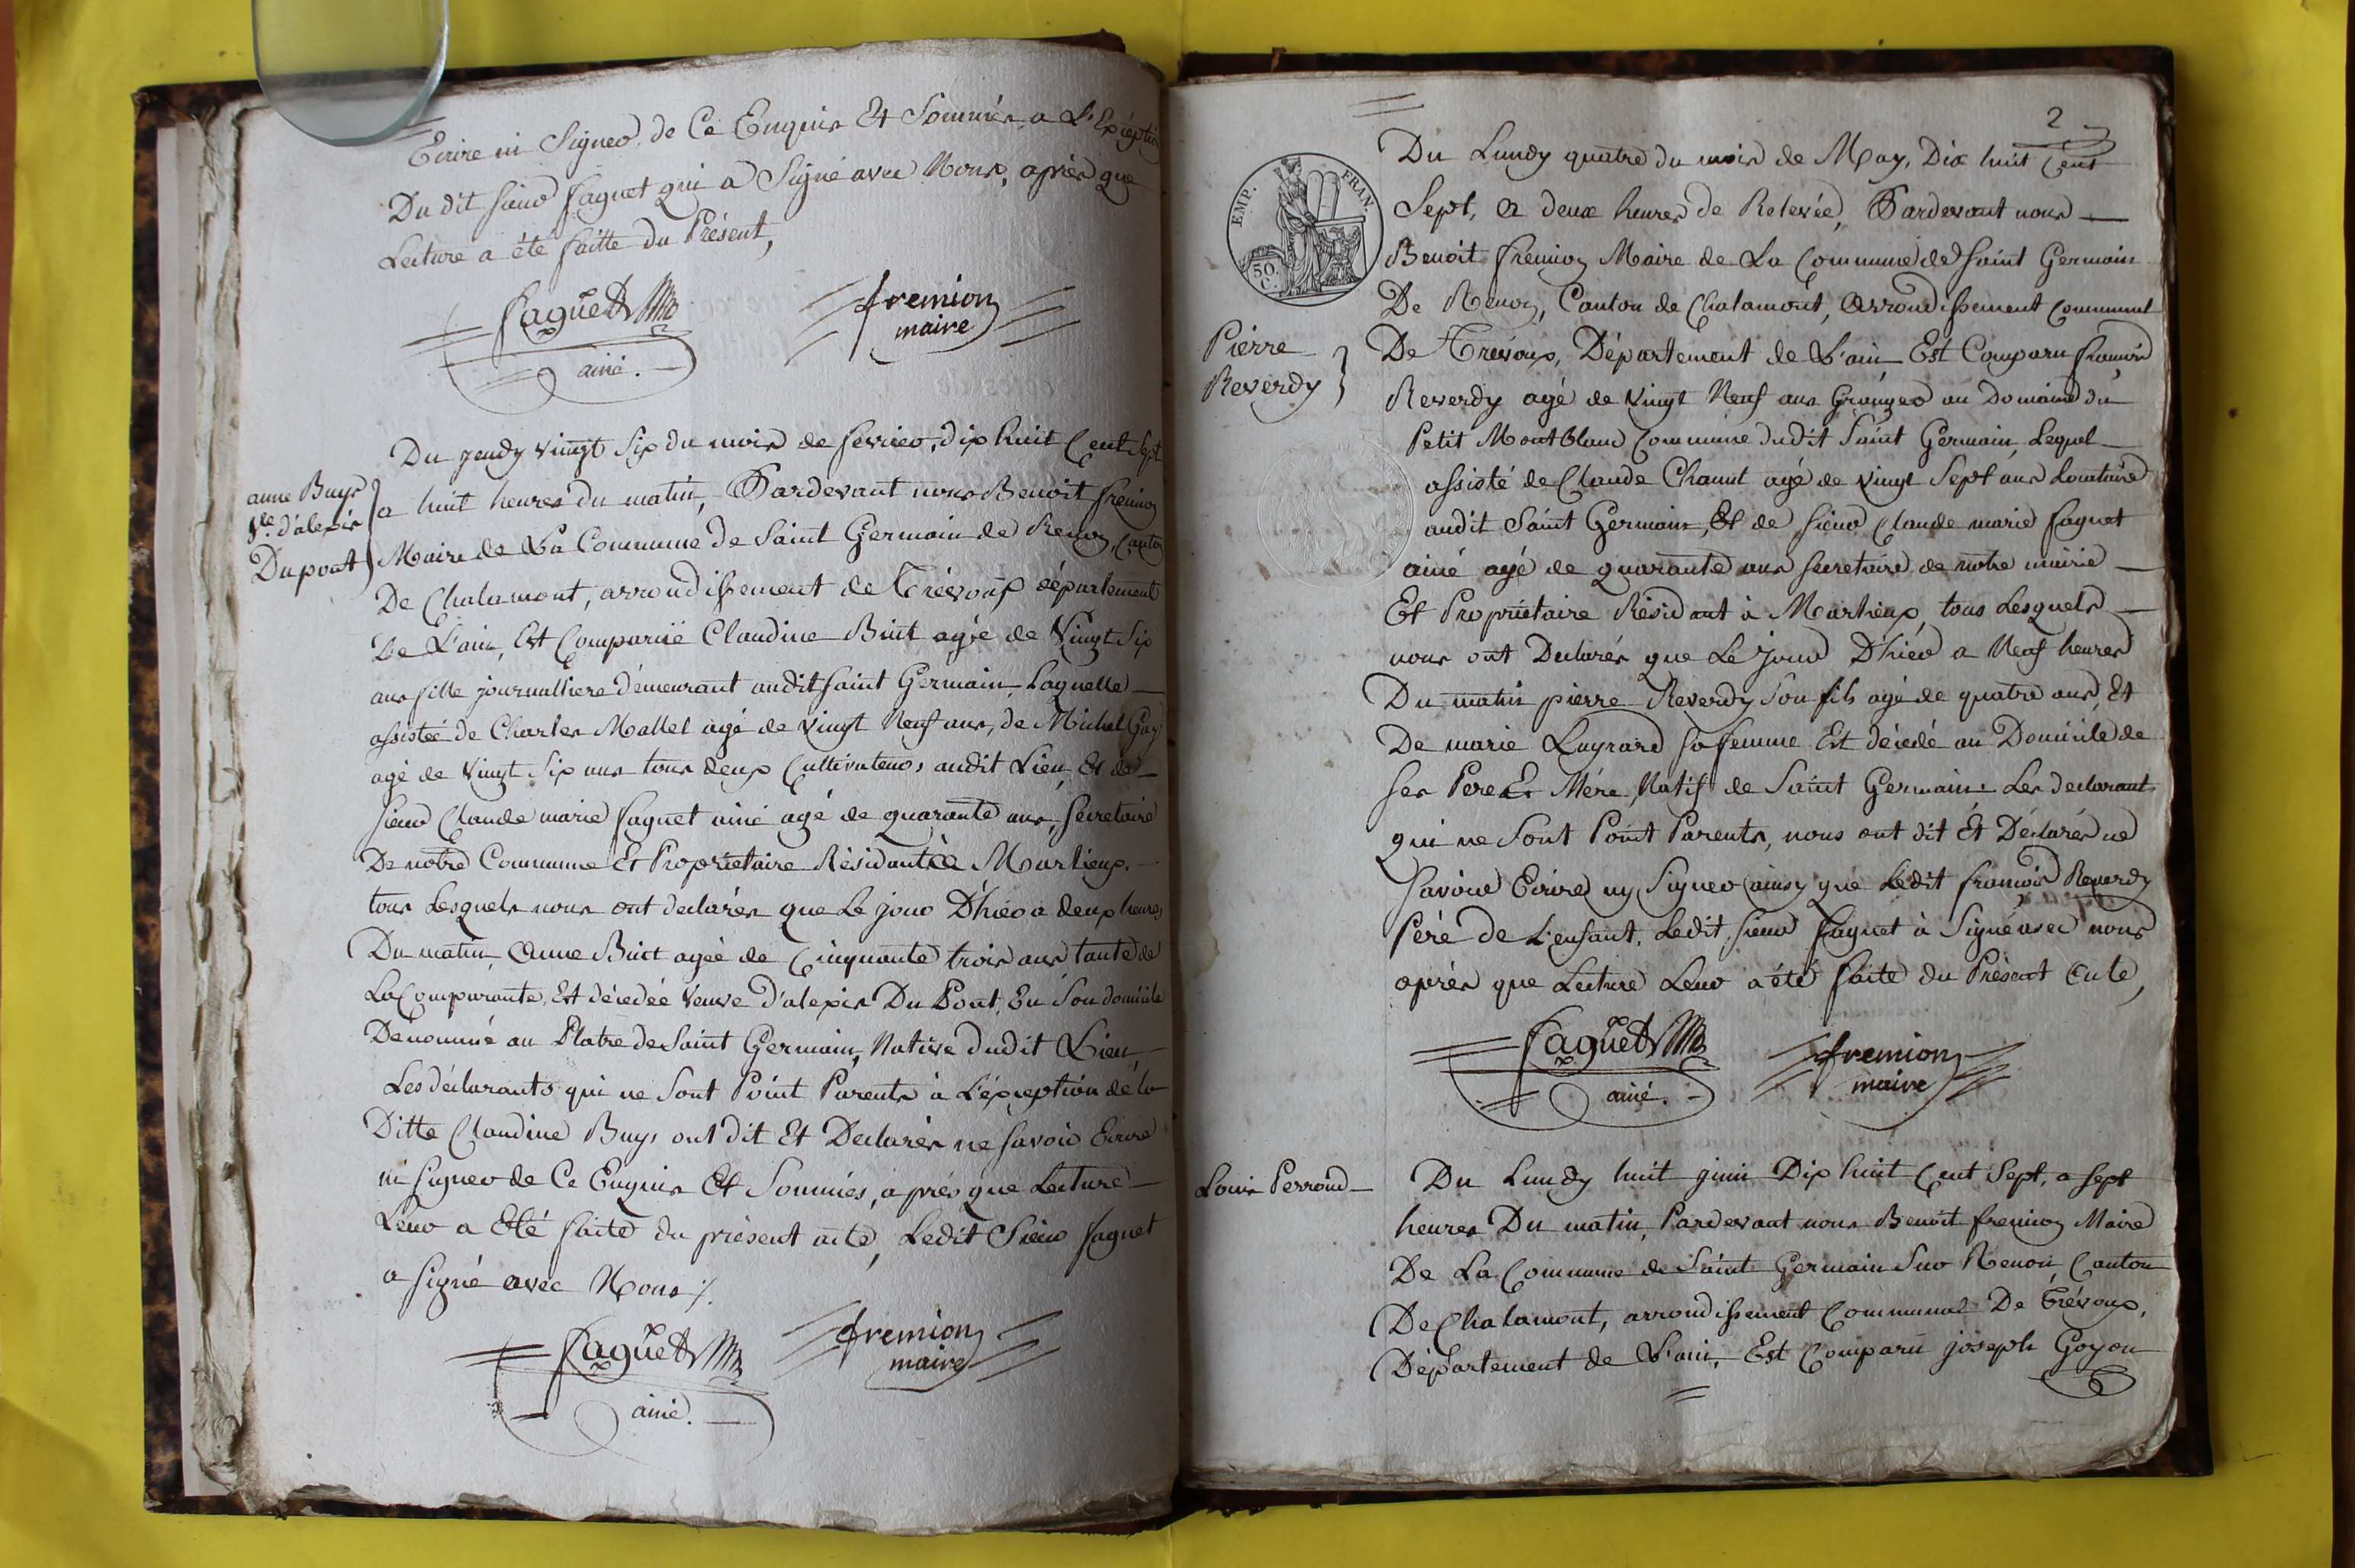 Ecrire ni Signer de Ce Enquis Et Sommés, a L'Exception
Du dit sieur faguet qui a Signé avec Nous, après que
Lecture a été faitte du Présent,
faguet
ainé.
fremion
maire
anne Buys
Ve. d'alexis
Dupont
Du jeudy vingt Six du mois de fevrier, dix huit Cent Sept
a huit heures du matin, Pardevant nous Benoit fremion
Maire de La Commune de Saint Germain de Renon, Canton
De Chalamont, arrondissement de Trévoux département
De L'ain, Est Comparuë Claudine Buit agée de Vingt Six
ans fille journalliere demeurant audit saint Germain, Laquelle
assistée de Charles Mallet agé de vingt Neuf ans, de Michel Guy
agé de vingt Six ans tous deux Cultivateurs audit Lieu, Et de
sieur Claude marie faguet ainé agé de quarante ans, Secretaire
De notre Commune Et Proprietaire Résidant à Marlieux.
tous Lesquels nous ont declarés que Le jour D'hier a deux heures
Du matin, Anne Buit agée de Cinquante trois ans tante de
La Comparante, Est décedée Veuve d'alexis Du Pont, En Son domicile
Dénommé au Platre de Saint Germain, Native dudit Lieu,
Les déclarants qui ne Sont Point Parents à L'exception de la
Ditte Claudine Buys ont dit Et Declarés ne savoir Ecrire
ni signer de Ce Enquis Et Sommés, après que Lecture
Leur a Eté faite du présent acte, Ledit Sieur faguet
a signé avec Nous ./.
faguet
ainé.
fremion
maire
2
EMP. FRAN.
50.
C.
Pierre
Reverdy
Du Lundy quatre du mois de May, Dix huit Cent
Sept, a deux heures de Relevée, Pardevant nous
Benoit fremion Maire de La Commune de Saint Germain
De Renon, Canton de Chalamont, Arrondissement Communal
De Trevoux, Département de L'ain, Est Comparu francois
Reverdy agé de vingt Neuf ans Granger au Domaine du
Petit Montblanc Commune dudit Saint Germain, Lequel
assisté de Claude Chanut agé de vingt Sept ans Locataire
audit Saint Germain, Et de sieur Claude marie faguet
ainé agé de quarante ans secretaire de notre mairie
Et Propriétaire Résidant à Marlieux, tous Lesquels
nous ont Declarés que Le Jour D'hier a Neuf heures
Du matin pierre Reverdy Son fils agé de quatre ans, Et
De marie Luyrard sa femme Est décedé au Domicile de
ses Pere Et Mére, Natif de Saint Germain. Les declarants
qui ne Sont Point Parents, nous ont dit Et Déclarés ne
savoir Ecrire ny Signer ainsy que Ledit francois Reverdy
Pére de L'enfant, Ledit sieur faguet à Signé avec nous
aprés que Lecture Leur a été faite du Présent acte,
faguet
ainé.
fremion
maire
Louis Perroud
Du Lundy huit juin Dix huit Cent Sept, a sept
heures Du matin, Pardevant nous Benoit fremion Maire
De La Commune de Saint Germain Sur Renon Canton
De Chalamont, arrondissement Communal De Trévoux,
Département de L'ain, Est Comparu joseph Goyon